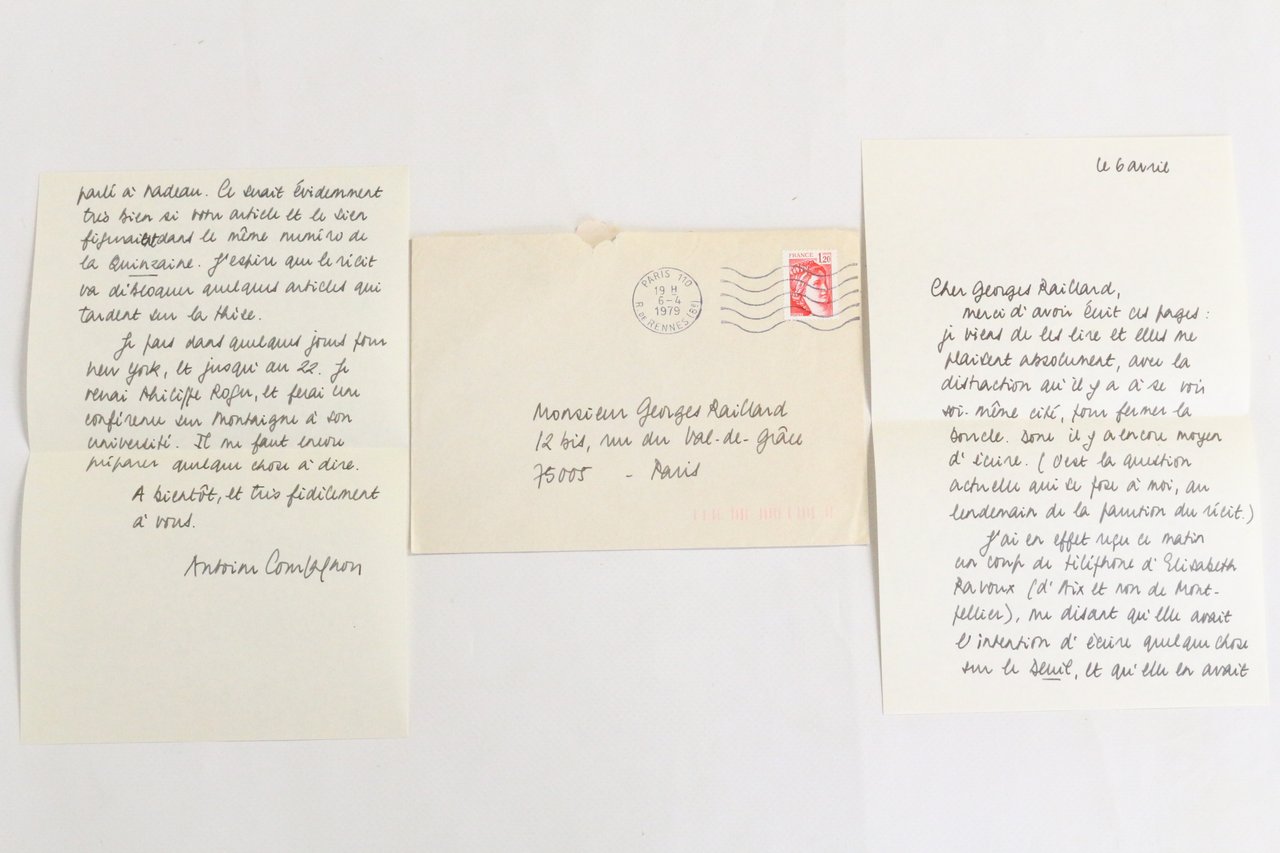 PARIS 110
19 H
6-4
1979
R. DE RENNES (6E)
FRANCE 1,20
Monsieur Georges Raillard
12 bis, rue du Val-de-Grâce
75005 - Paris
le 6 avril
Cher Georges Raillard,
merci d'avoir écrit ces pages :
je viens de les lire et elles me
plaisent absolument, avec la
distraction qu'il y a à se voir
soi-même cité, pour fermer la
boucle. Donc il y a encore moyen
d'écrire. (C'est la question
actuelle qui se pose à moi, au
lendemain de la parution du récit.)
J'ai en effet reçu ce matin
un coup de téléphone d'Elisabeth
Ravoux (d'Aix et non de Mont-
pellier), me disant qu'elle avait
l'intention d'écrire quelque chose
sur le Deuil, et qu'elle en avait
parlé à Nadeau. Ce serait évidemment
très bien si votre article et le sien
figuraient dans le même numéro de
la Quinzaine. J'espère que le récit
va débloquer quelques articles qui
tardent sur la thèse.
Je pars dans quelques jours pour
New York, et jusqu'au 22. Je
verrai Philippe Roger, et ferai une
conférence sur Montaigne à son
université. Il me faut encore
préparer quelque chose à dire.
A bientôt, et très fidèlement
à vous.
Antoine Compagnon